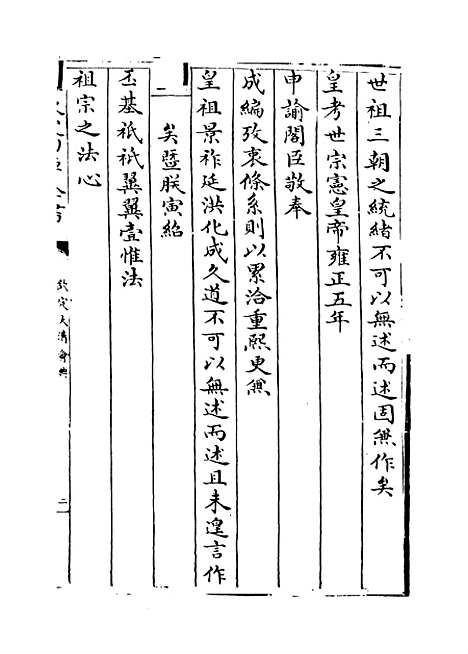 世祖三朝之統緒不可以無述而述固無作矣
皇考世宗憲皇帝雍正五年
申諭閣臣敬奉
成編攷衷條系則以累洽重熙更無
皇祖景祚延洪化成久道不可以無述而述且未遑言作
矣暨朕寅紹
丕基祇祇翼翼壹惟法
祖宗之法心
欽定大清會典
二